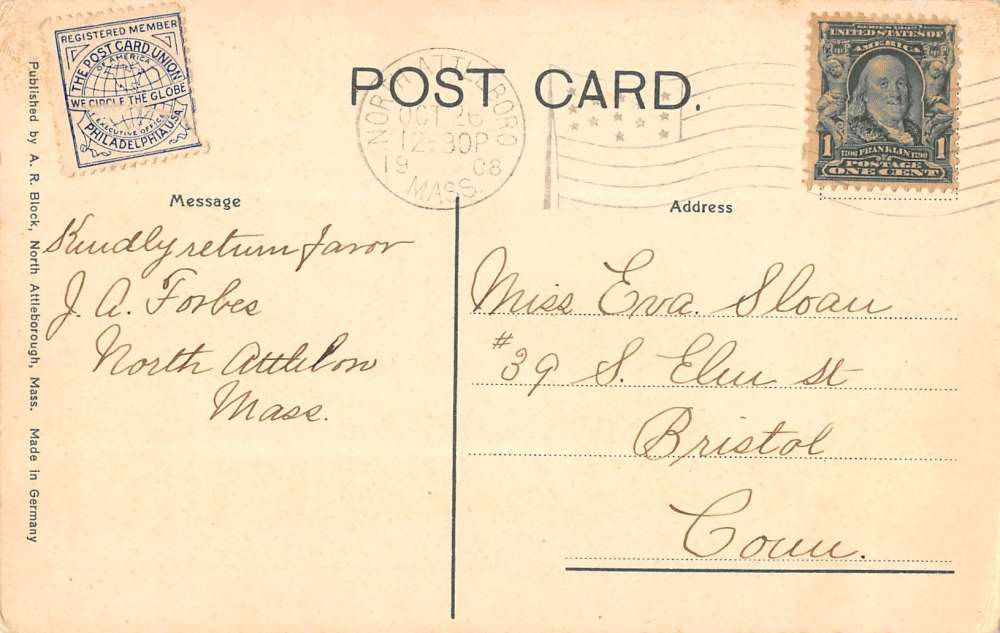 REGISTERED MEMBER
THE POST CARD UNION
OF AMERICA
WE CIRCLE THE GLOBE
EXECUTIVE OFFICE
PHILADELPHIA USA
POST CARD.
NORTH ATTLEBORO
OCT 26
12-30P
1908
MASS.
SERIES 1902
UNITED STATES OF
AMERICA
1 1
1706 FRANKLIN 1790
POSTAGE
ONE CENT
Message
Kindly return favor
J. A. Forbes
North Attleboro
Mass.
Address
Miss Eva. Sloan
#39 S. Elm st
Bristol
Conn.
Published by A. R. Block, North Attleborough, Mass. Made in Germany